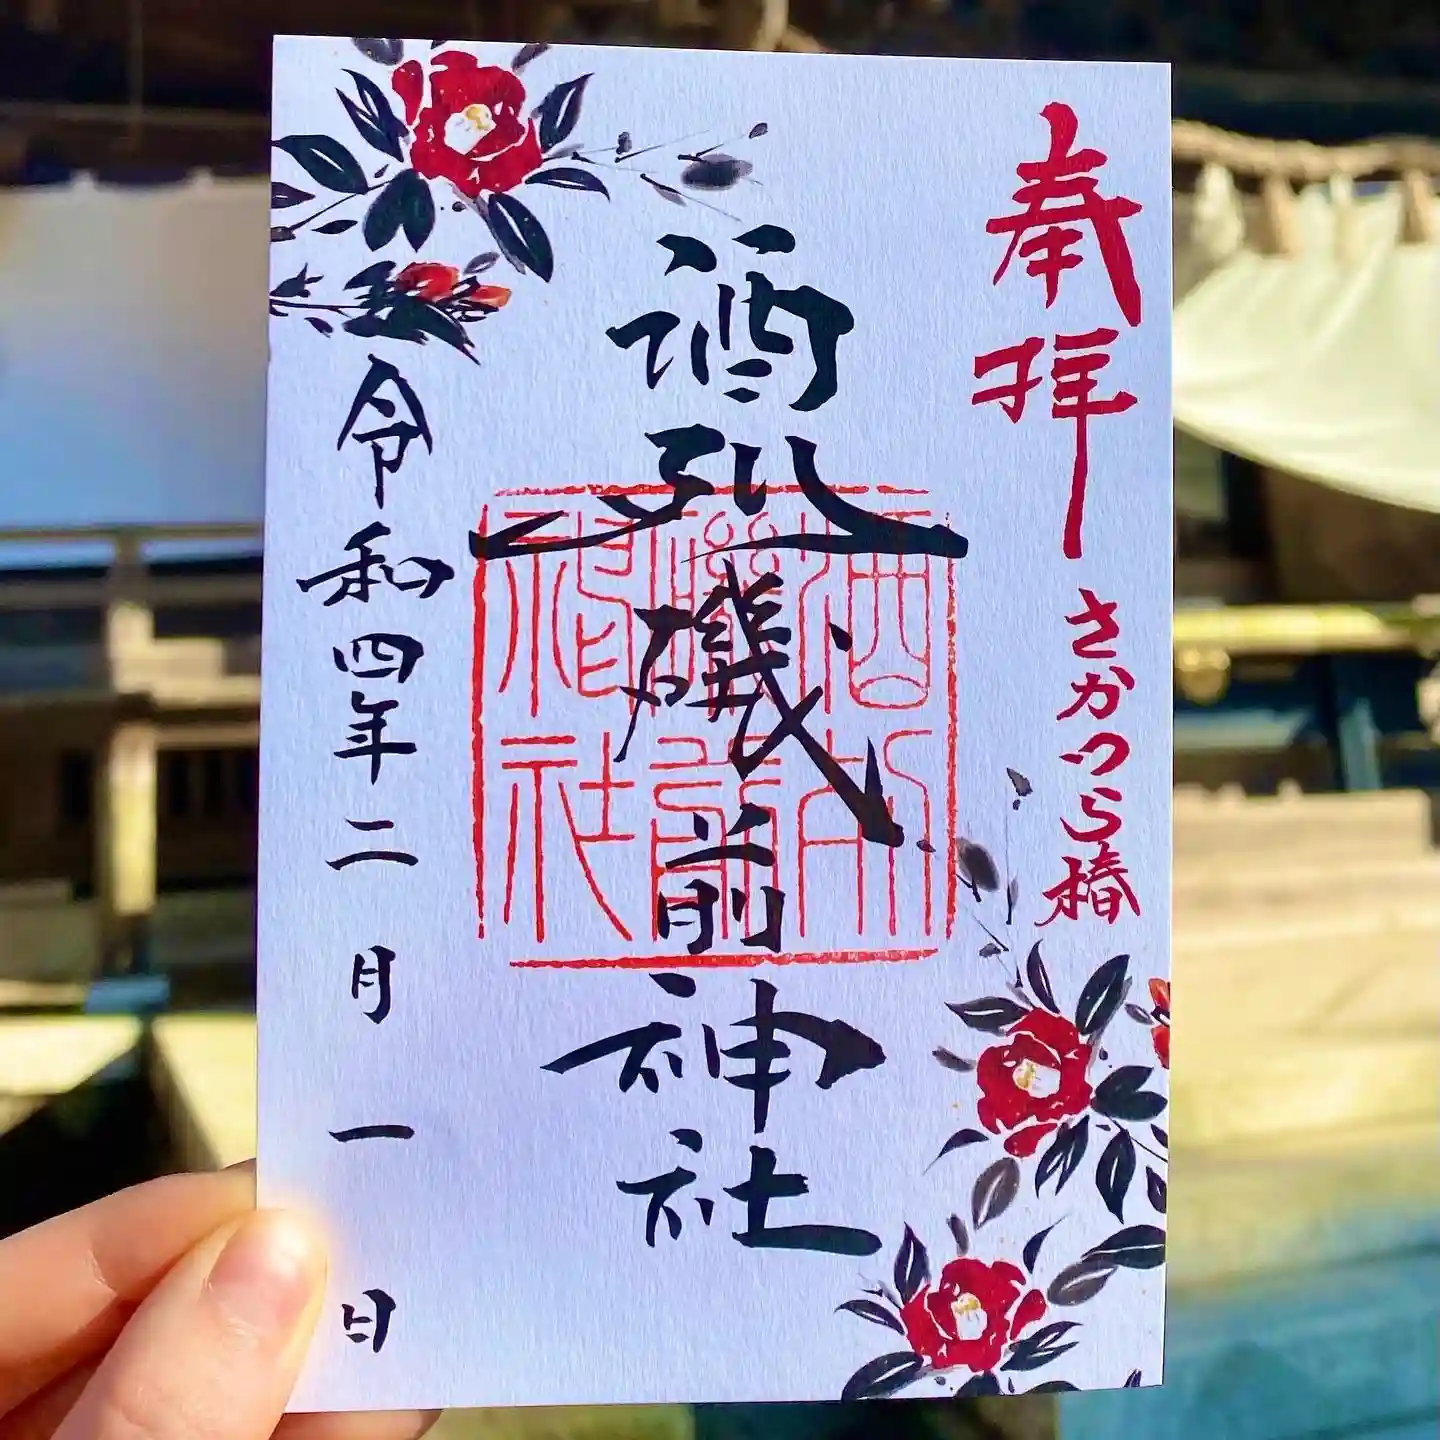 奉拝
さかつら椿
酒列磯前神社
酒列
磯前
神社
令和四年二月一日